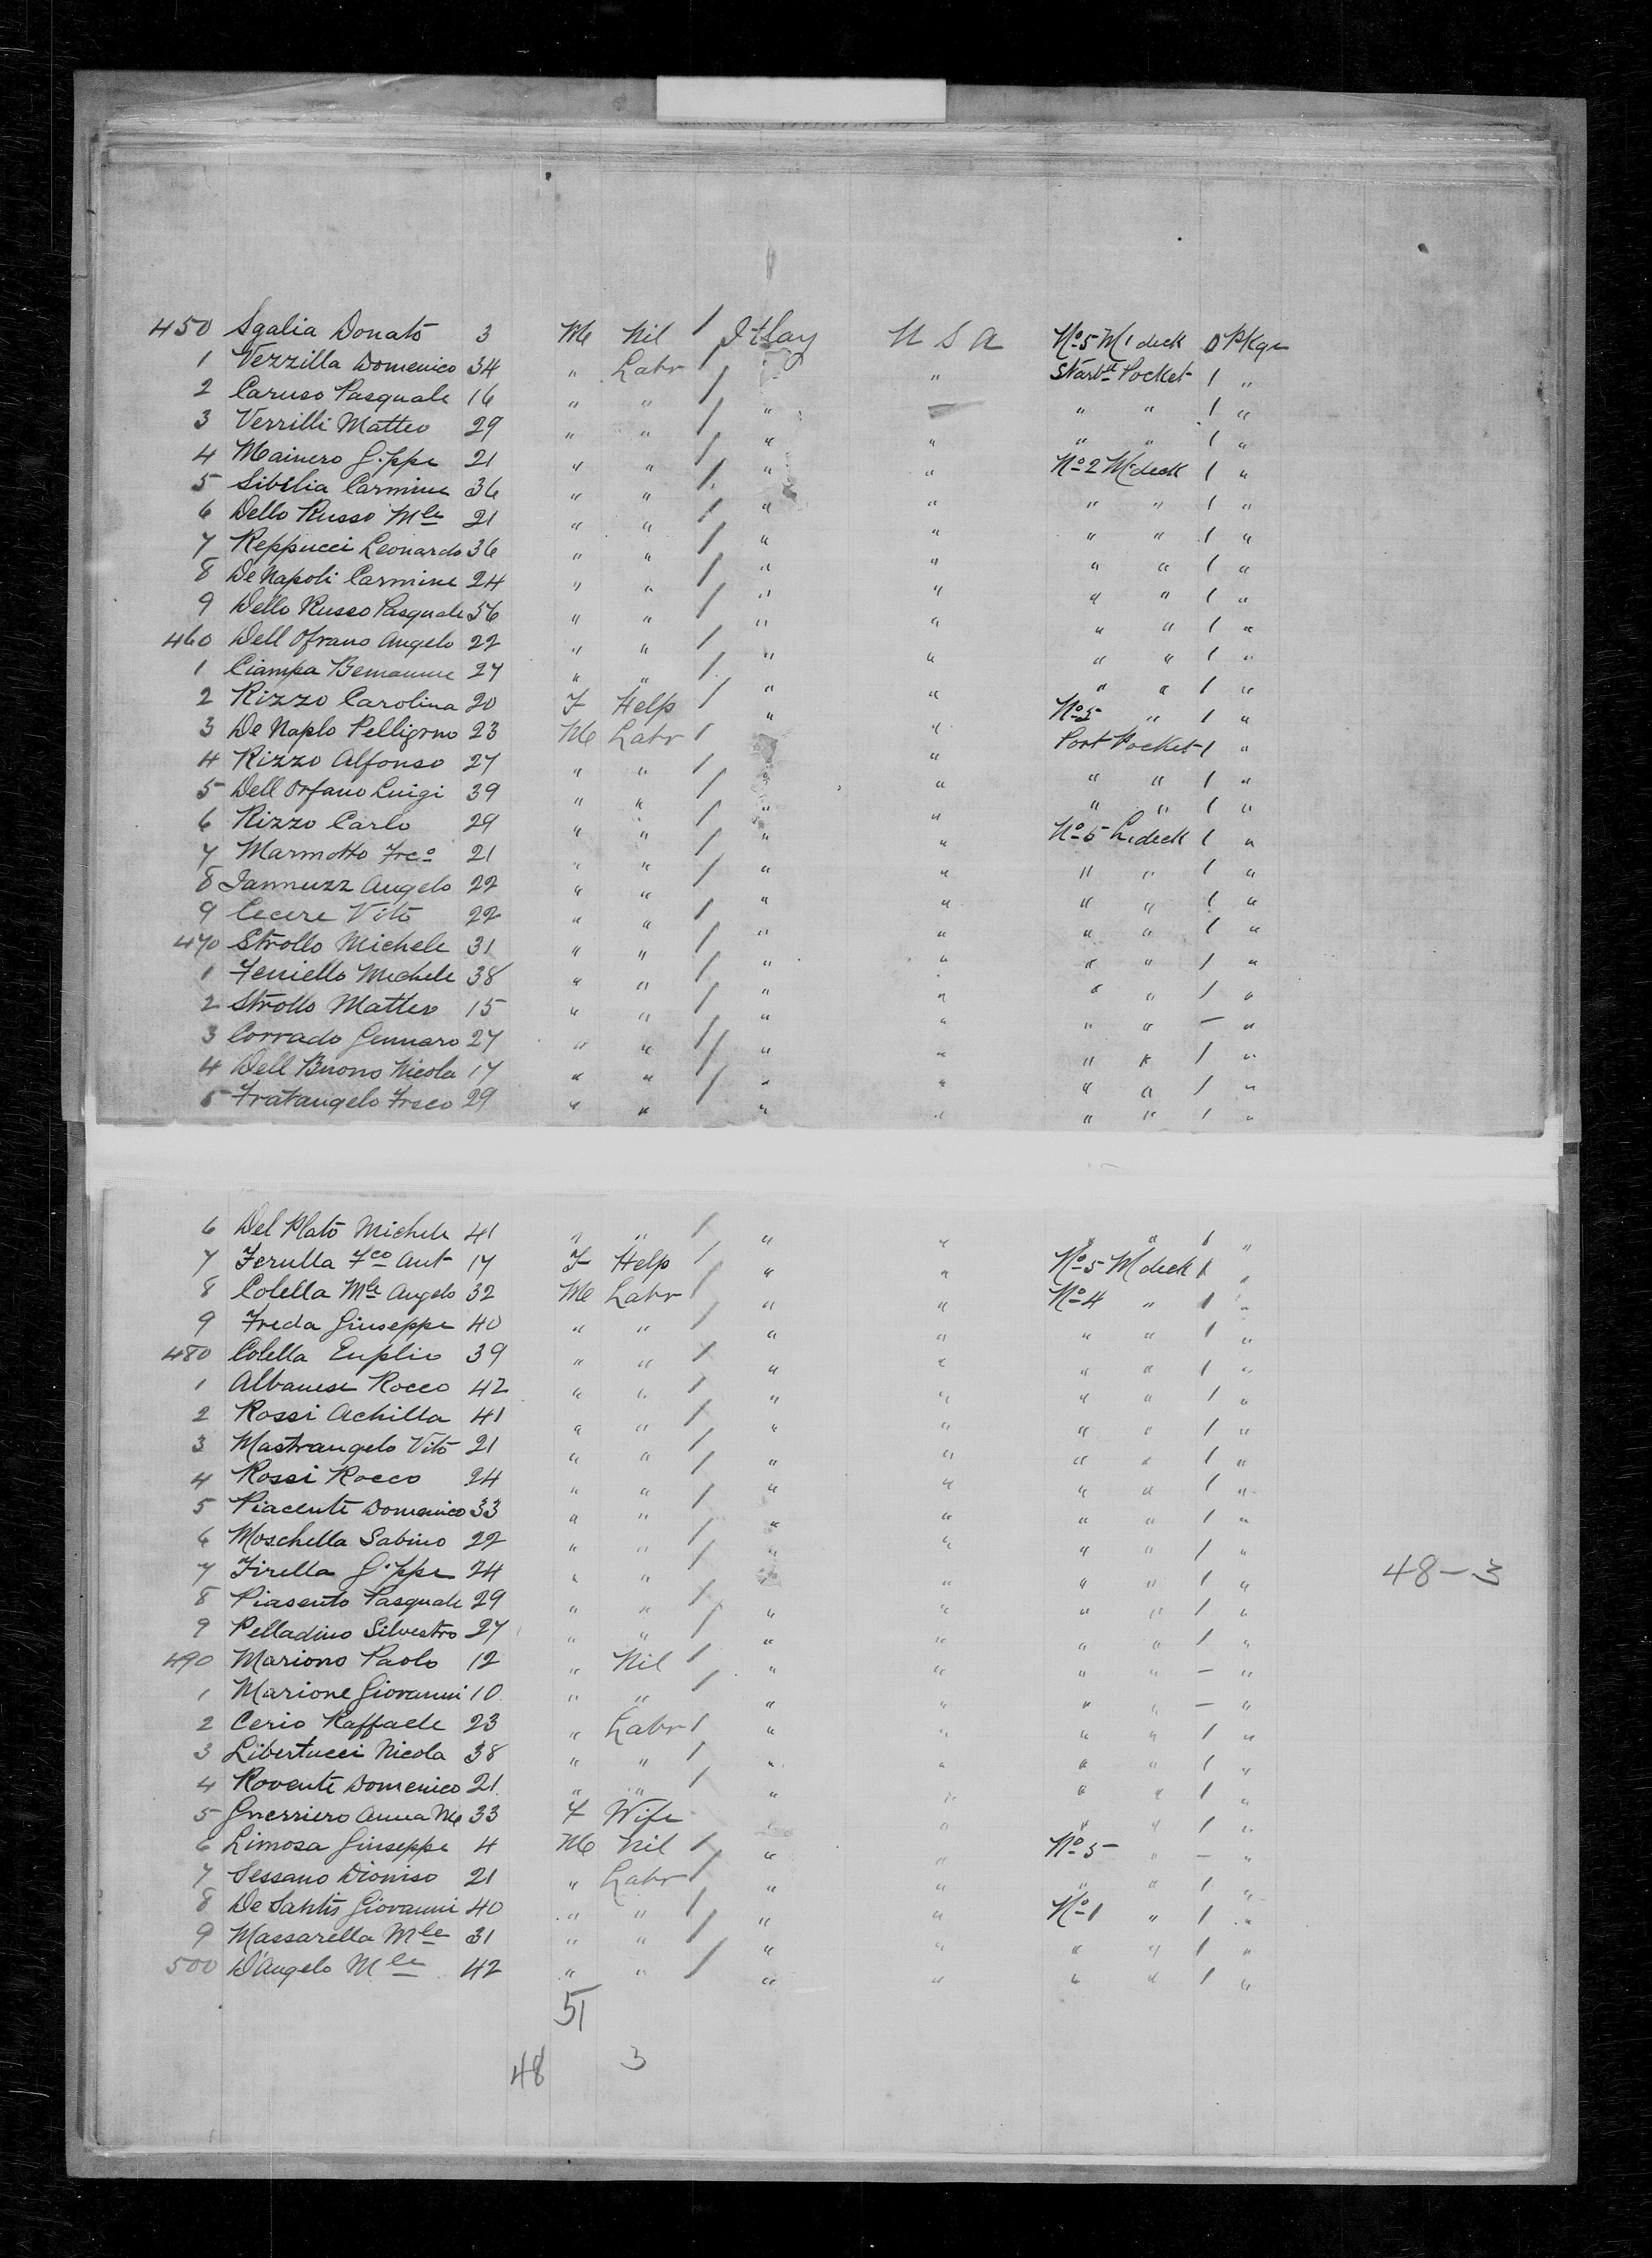 450 Sgalia Donato 3 M Nil / Itlay U S A No 5 M deck 0 Pkge
1 Vezzilla Domenico 34 " Labr / " " Starbd Pocket 1 "
2 Caruso Pasquale 16 " " / " " " " 1 "
3 Verrilli Matteo 29 " " / " " " " 1 "
4 Mainero G.ppe 21 " " / " " No 2 M deck 1 "
5 Sibilia Carmine 36 " " / " " " " 1 "
6 Dello Russo Mle 21 " " / " " " " 1 "
7 Reppucci Leonardo 36 " " / " " " " 1 "
8 De Napoli Carmine 24 " " / " " " " 1 "
9 Dello Russo Pasquale 36 " " / " " " " 1 "
460 Dell Ofrano Angelo 22 " " / " " " " 1 "
1 Ciampa 27 " " / " " " " 1 "
2 Rizzo Carolina 20 F Help / " " No 5 " 1 "
3 De Naplo Pelligrno 23 M Labr / " " Port Pocket 1 "
4 Rizzo Alfonso 27 " " / " " " " 1 "
5 Dell Orfano Luigi 39 " " / " " " " 1 "
6 Rizzo Carlo 29 " " / " " No 5 L deck 1 "
7 Marmotto Frco 21 " " / " " " " 1 "
8 Iannuzz Angelo 22 " " / " " " " 1 "
9 Cecere Vito 22 " " / " " " " 1 "
470 Strollo Michele 31 " " / " " " " 1 "
1 Feniello Michele 38 " " / " " " " 1 "
2 Strollo Matteo 15 " " / " " " " — "
3 Corrado Gennaro 27 " " / " " " " 1 "
4 Dell Buono Nicola 17 " " / " " " " 1 "
5 Fratangelo Frsco 29 " " / " " " " 1 "
6 Del Plato Michele 41 " " / " " " " 1 "
7 Ferulla Fco Ant 17 F Help / " " No 5 M deck 1 "
8 Colella Mle Angelo 32 M Labr / " " No 4 " 1 "
9 Freda Giuseppe 40 " " / " " " " 1 "
480 Colella Euplio 39 " " / " " " " 1 "
1 Albanese Rocco 42 " " / " " " " 1 "
2 Rossi Achilla 41 " " / " " " " 1 "
3 Mastrangelo Vito 21 " " / " " " " 1 "
4 Rossi Rocco 24 " " / " " " " 1 "
5 Piacente Domenico 33 " " / " " " " 1 "
6 Moschella Sabino 22 " " / " " " " 1 "
7 Firella G.ppe 24 " " / " " " " 1 " 48-3
8 Piasento Pasquale 29 " " / " " " " 1 "
9 Pelladino Silvestro 27 " " / " " " " 1 "
490 Mariono Paolo 12 " Nil / " " " " — "
1 Marione Giovanni 10 " " / " " " " — "
2 Cerio Raffaele 23 " Labr / " " " " 1 "
3 Libertucci Nicola 38 " " / " " " " 1 "
4 Rovente Domenico 21 " " / " " " " 1 "
5 Guerriero Anna Ma 33 F Wife " " " " 1 "
6 Limosa Giuseppe 4 M Nil / " " No 5 " — "
7 Sessano Dioniso 21 " Labr / " " " " 1 "
8 De Santis Giovanni 40 " " / " " No 1 " 1 "
9 Massarella Mle 31 " " / " " " " 1 "
500 D'Angelo Mle 42 " " / " " " " 1 "
51
48 3